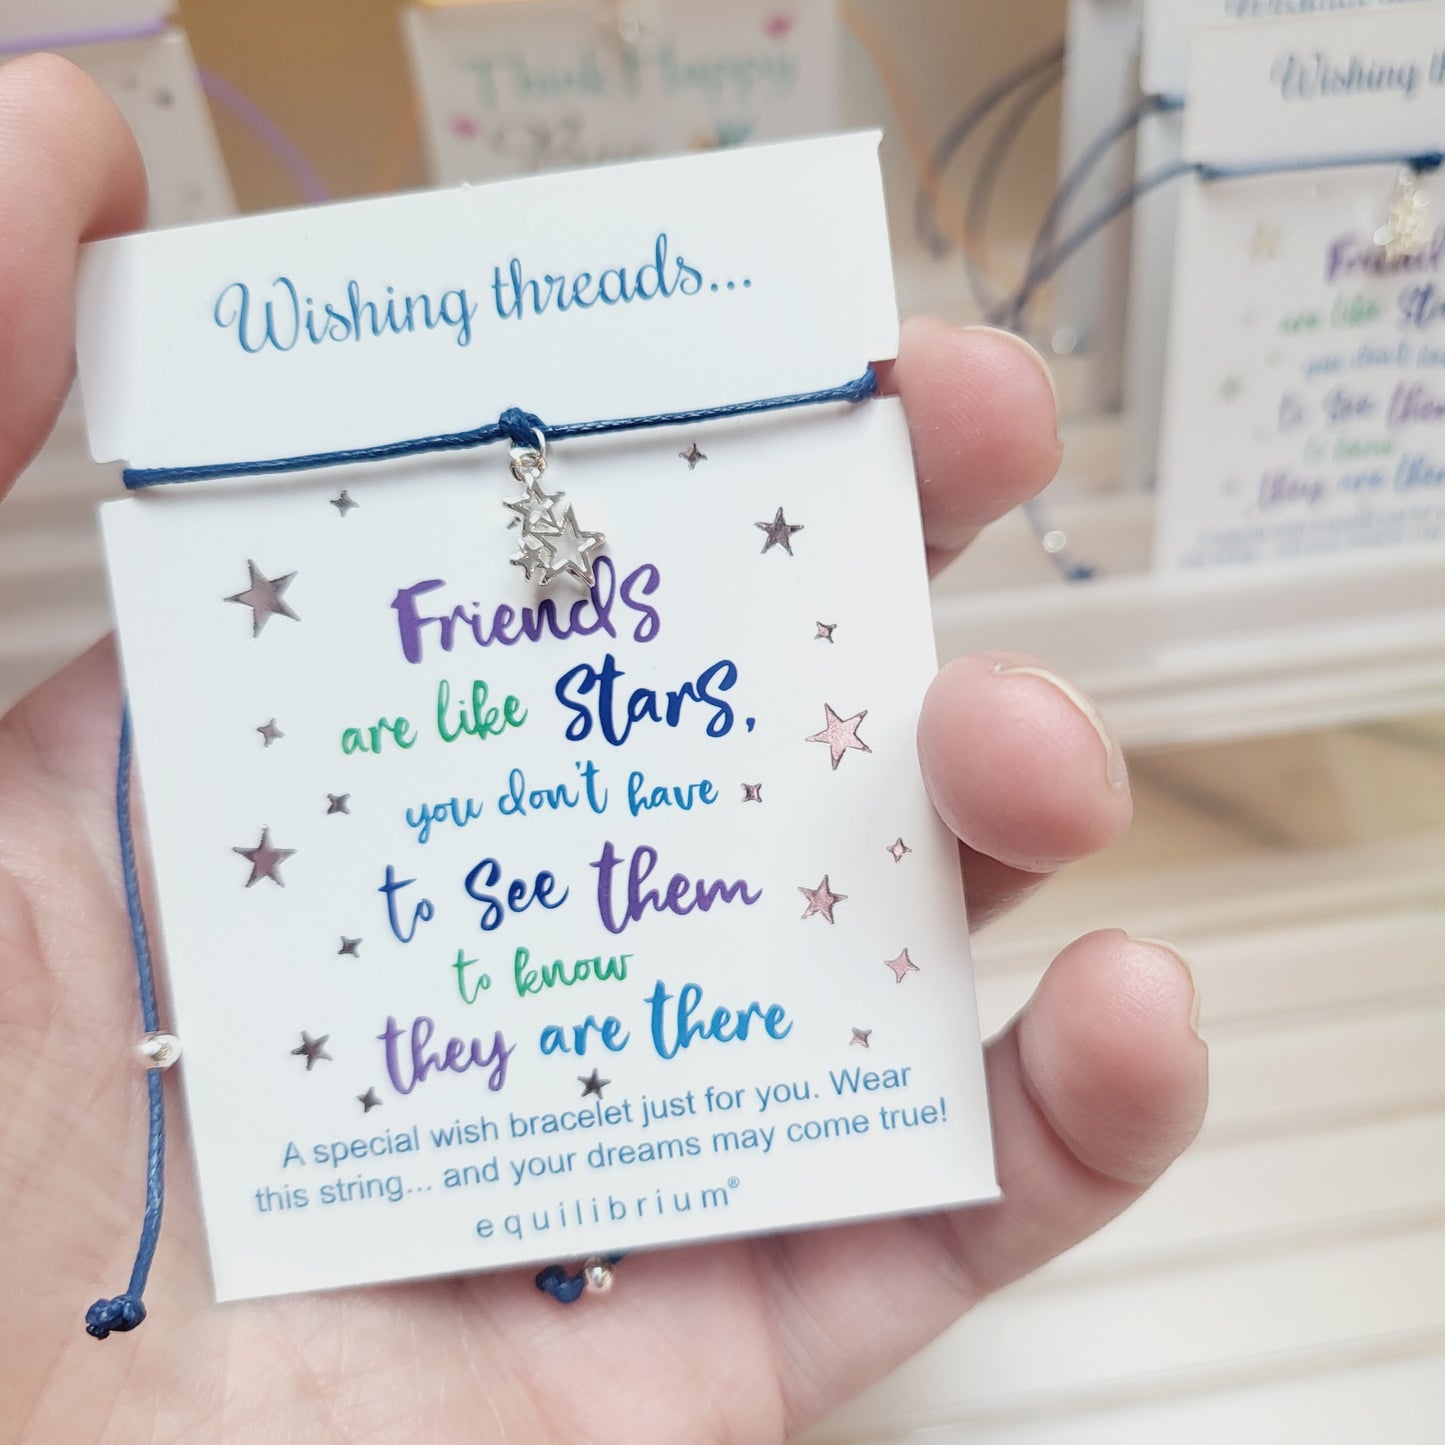 Wishing threads...
Friends
are like Stars,
you don't have
to See them
to know
they are there
A special wish bracelet just for you. Wear
this string... and your dreams may come true!
equilibrium®
Think Happy
Wishing
Friend
are like
you don't
to See them
to know
they are